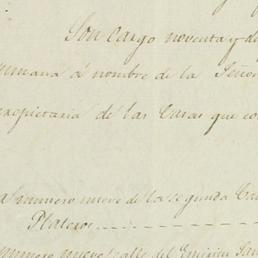 Son cargo noventa y de
semana á nombre de la Señor
propietaria de las Casas que co
numero nueve de la segunda Ca
Plateros
numero nueve calle del Espiritu San